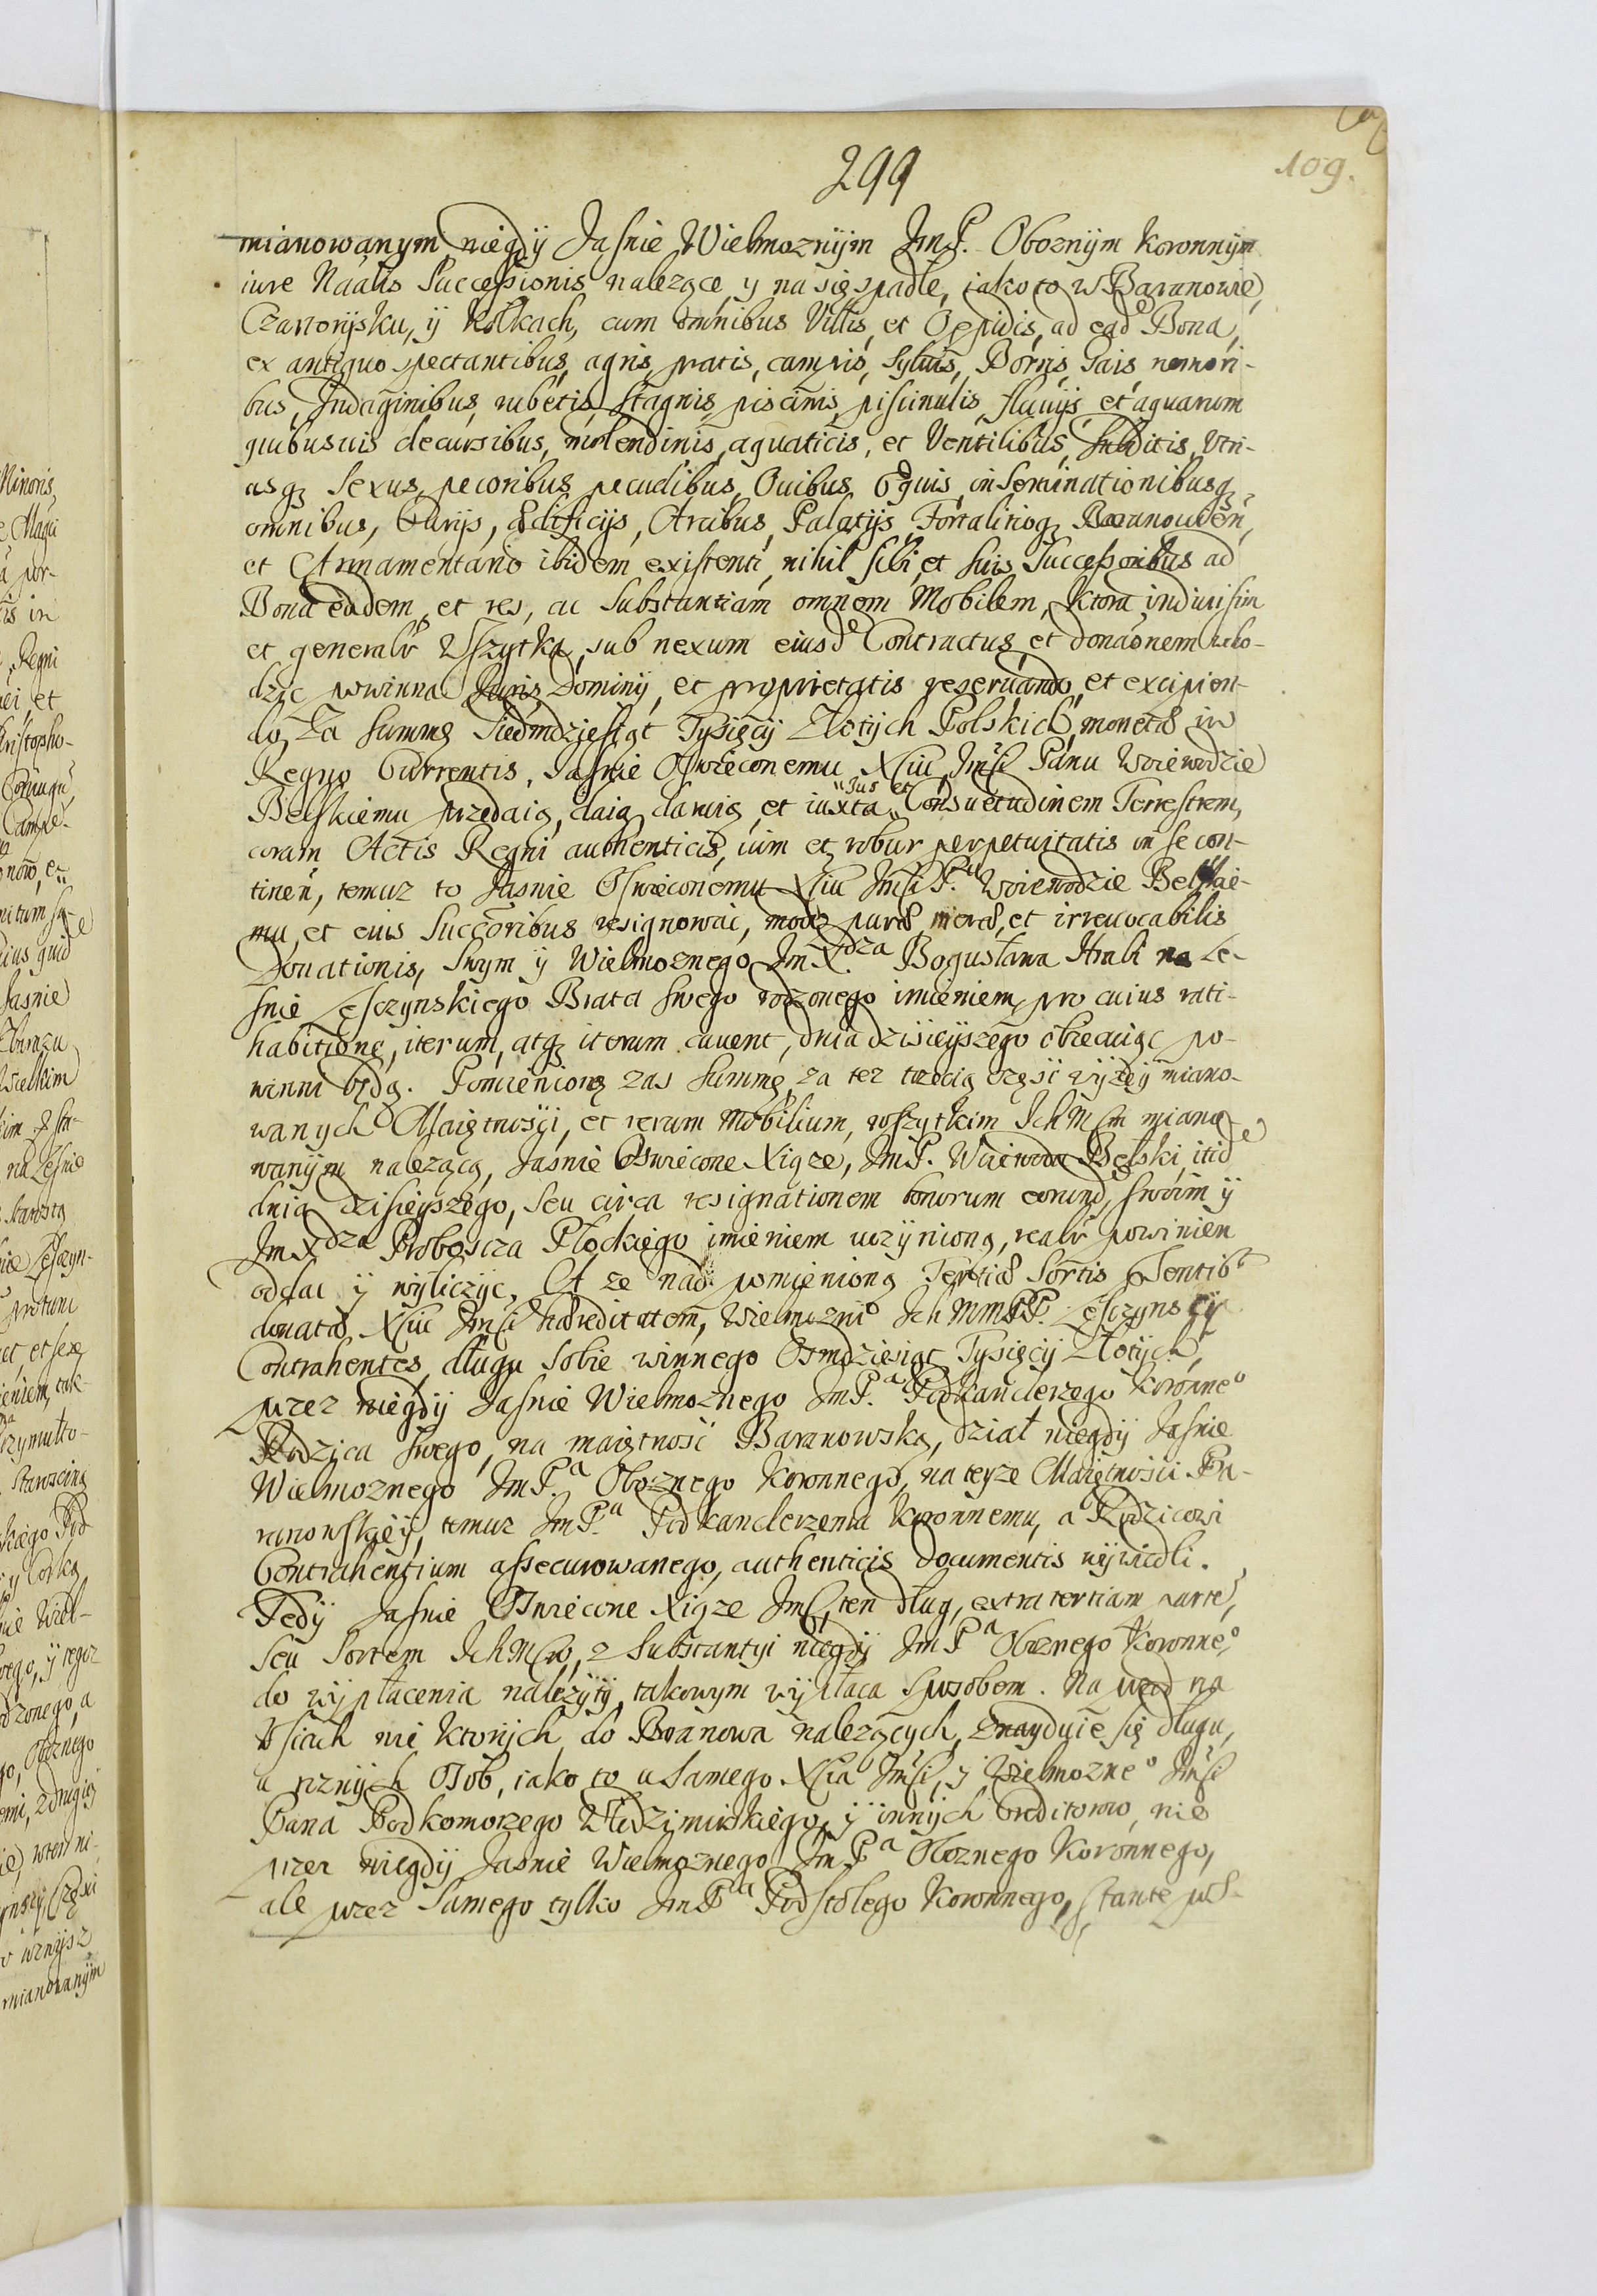 299
109.
mianowanym niegdÿ Jasnie Wielmoznÿm JmP. Oboznÿm Koronnÿm
iure Naalis Successionis nalezące, y na się spadłe, iako to w Baranowie,
Czartorÿsku, ÿ Kołkach, cum omnibus Villis, et Oppidis, ad eade Bona,
ex antiquo spectantibus, agris, pratis, campis, sylvis, Borris, Gais, nemori-
bus, Indaginibus, rubetis, stagnis, piscinis, piscinulis, fluvijs, et aquarum
quibusuis decursibus, molendinis, aquaticis, et Ventilibus, subditis, Vtri-
usq3 Sexus, pecoribus, pecudibus, Ouibus, Equis, inseminationibusq3
omnibus, Curijs, ædificijs, Arcibus, Palatijs, Fortalitioq3 Baranoviēn,
et Armamentario ibidem existenti, nihil sibi, et suis Successoribus ad
Bona eadem, et res, ac Substantiam omnem Mobilem, ktora indivisim
et generalr Wszytka, sub nexum eiusde Contractus, et donaōnem wcho-
dzic powinna Juris, Dominij, et proprietatis reseruando, et excipien-
do, Za summę Siedmdziesiąt Tysięcÿ Złotÿch Polskich, monetæ in
Regno Currentis, Jasnie Oswieconemu Xciu Jmści Panu Woiewodzie
Belskiemu przedaią, daią, daruią, et iuxta "Jus et" Consuetudinem Terrestrem,
coram Actis Regni authenticis, vim et robur perpetuitatis in se con-
tinēn, temuz to Jasnie Oswieconemu Xciu Jmści P.u Woiewodzie Belskie-
mu, et eius Succōribus resignowac, modo puræ, meræ, et irreuocabilis
Donationis, Swym ÿ Wielmoznego JmX.dza Bogusława Hrabi na Le-
snie Leszczynskiego Brata swego rodzonego imieniem, pro cuius rati-
habitione, iterum, atq3 iterum cauent, dnia dzisieÿszego obiecuiąc po-
winni będą. Pomienioną zas summę, za tez trzecią częsc wÿzeÿ miano-
wanych Maiętnosci, et rerum Mobilium, wszytkim IchMm miano-
wanÿm nalezącą, Jasnie Oswiecone Xiąze, JmP. Woiewoda Bełski, itide
dnia dzisieyszego, seu circa resignationem bonorum eorund, swoim ÿ
JmXdza Proboscza Płockiego imieniem uczÿnioną, realr powinien
oddac ÿ wÿliczÿc, A ze nad pomienioną Tertiæ Sortis
donatæ, Xciu Jmści hæreditatem, Wielmozni IchMmPP. Leszczynscÿ
Contrahentes, długu sobie winnego Osmdziesiąt Tysięcÿ Złotÿch,
przez niegdÿ Jasnie Wielmoznego JmP.a Podkanclerzego Koronneo
Rodzica swego, na maiętnosc Baranowską, dział niegdÿ Jasnie
Wielmoznego JmP.a Oboznego Koronnego, na teyze Maiętnosci Ba-
ranowskieÿ, temuz JmP.u Podkanclerzemu Koronnemu, a Rodzicowi
Contrahentium assecurowanego, authenticis documentis wÿwiedli.
Tedÿ Jasnie Oswiecone Xiąze Jmć, ten dług, extra tertiam parte,
seu Sortem IchMciw, z Substantyi niegdÿ JmPa Oboznego Koronneo,
do wÿpłacenia nalezÿtÿ, takowym wÿpłaca sposobem. Na przod na
Wsiach nie ktorÿch, do Baranowa nalezących, znayduie się długu,
u roznÿch Osob, iako to u samego Xcia Jmści, ÿ Wielmozneo Jmści
Pana Podkomorzego Włodzimirskiego, ÿ innÿch Creditorow, nie
przez niegdÿ Jasnie Wielmoznego JmPa Oboznego Koronnego,
ale przez samego tylko JmPa Podstolego Koronnego, stante